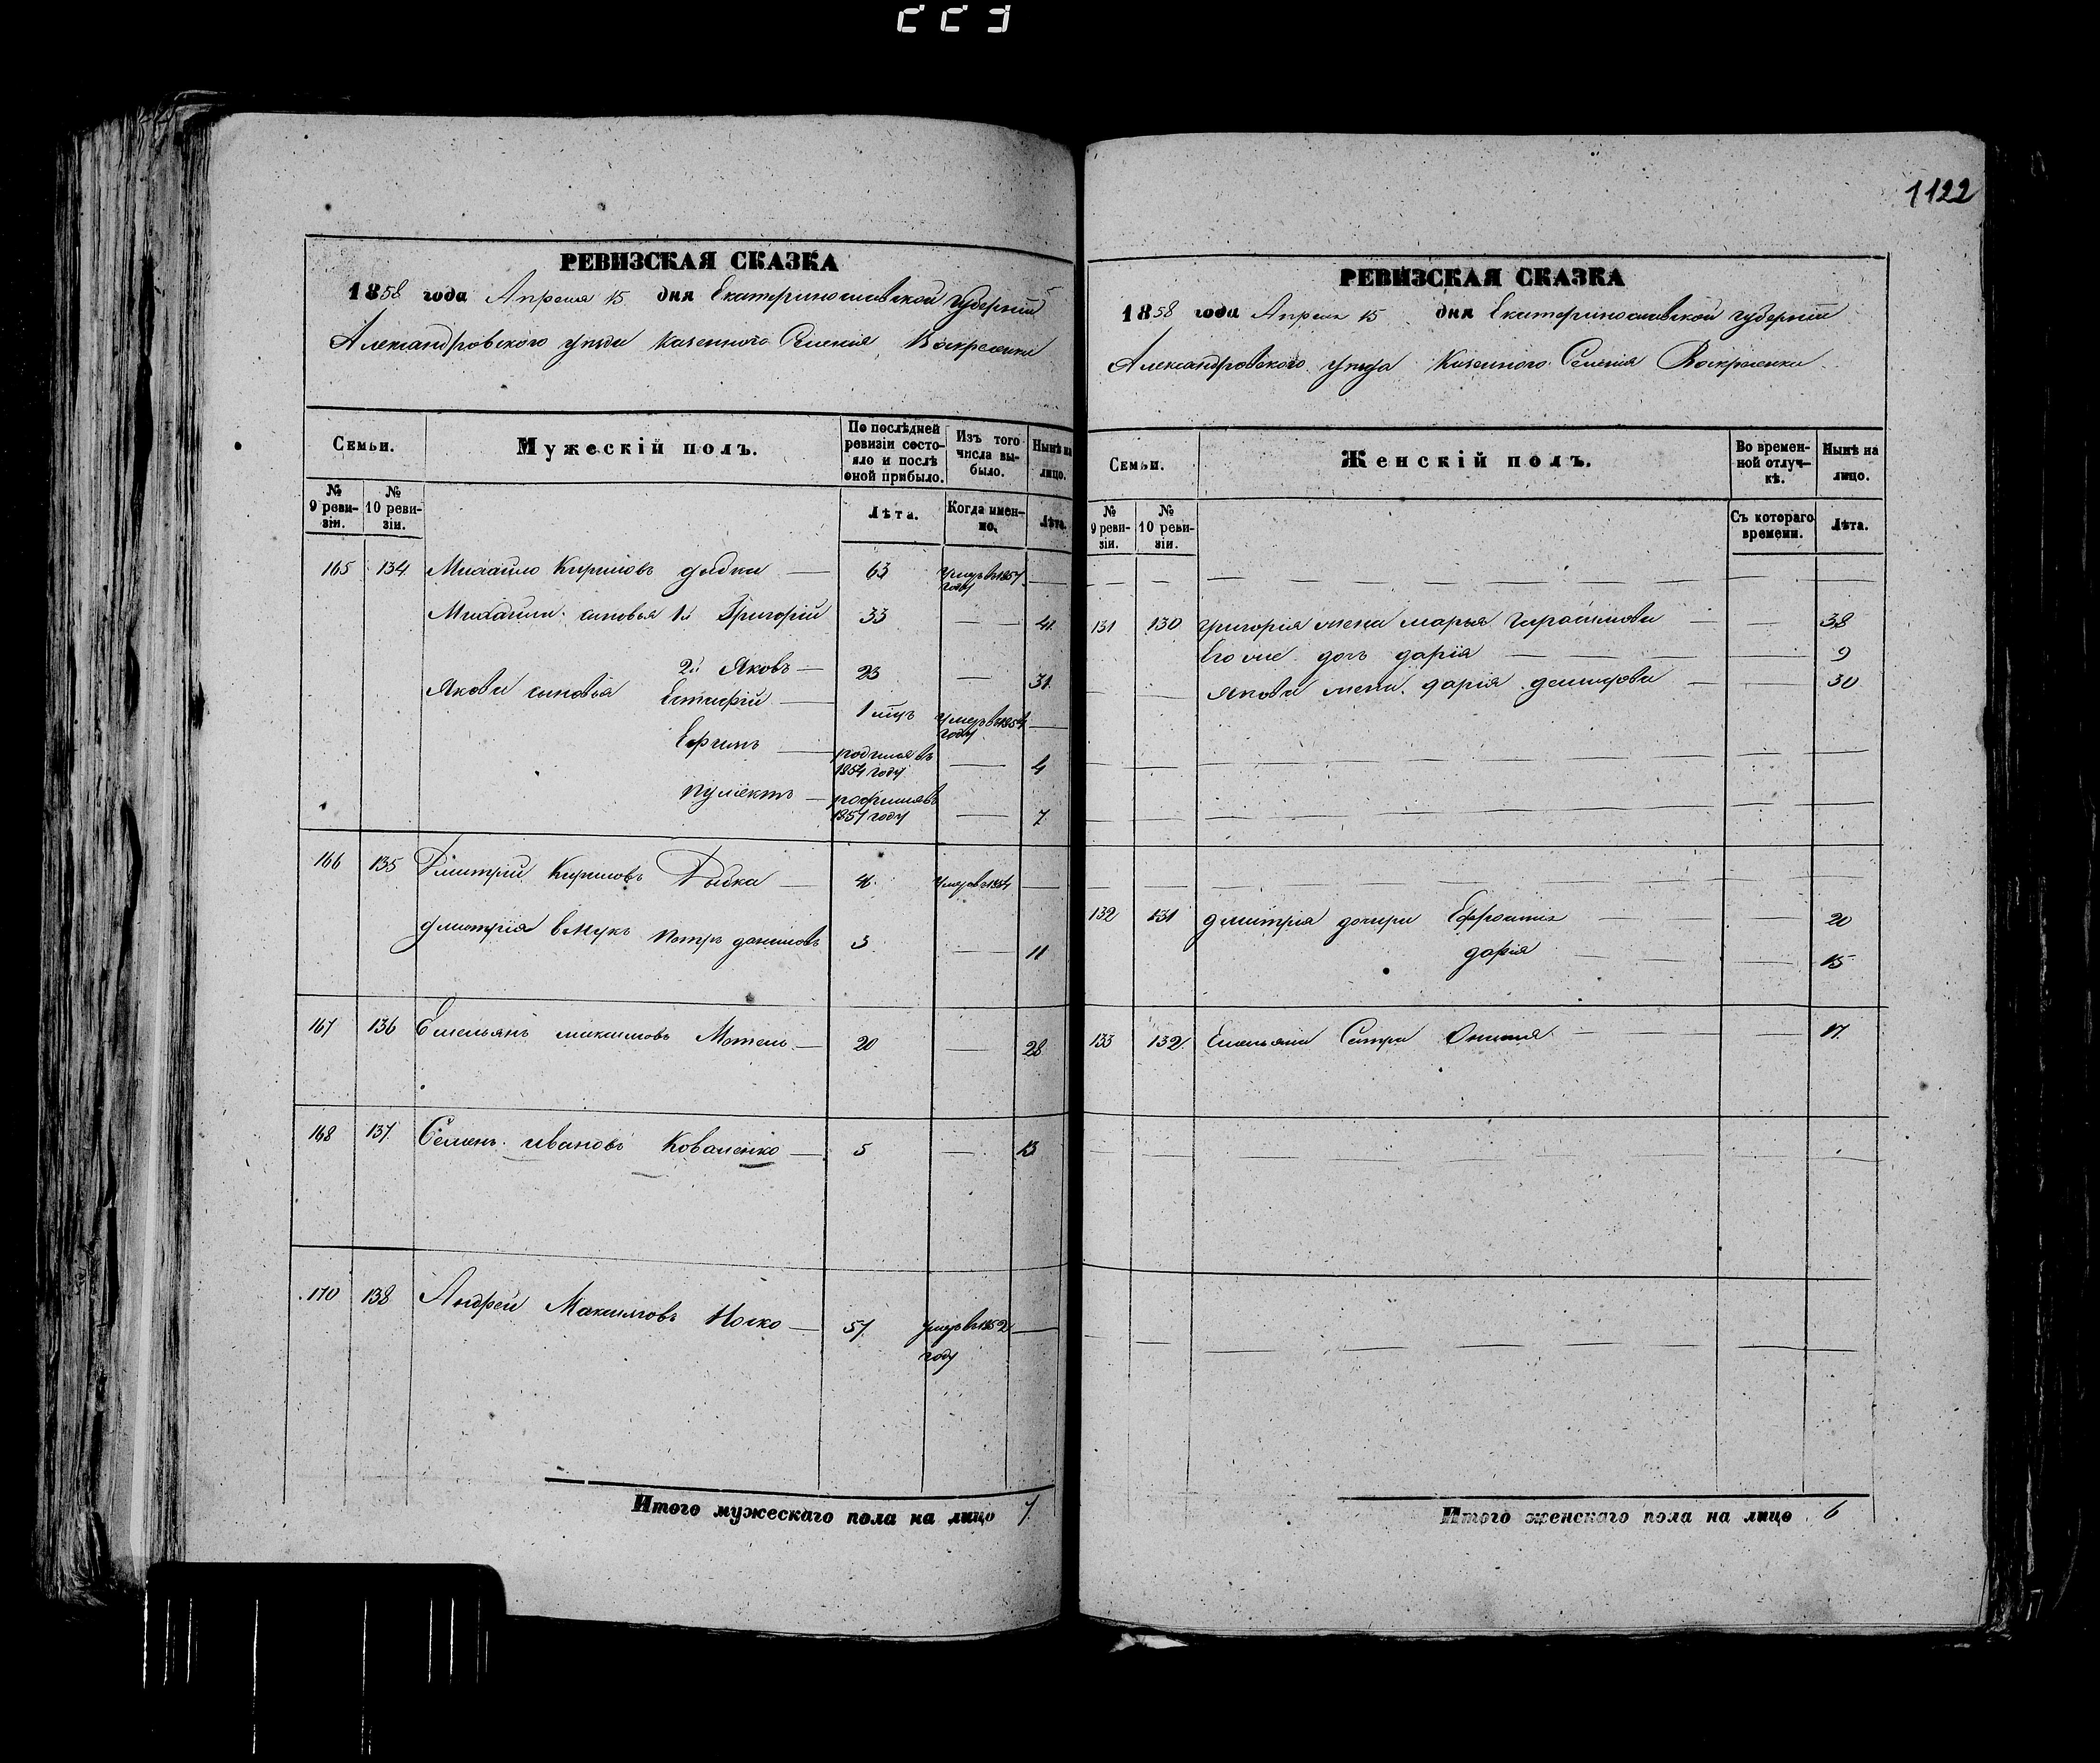 1122
РЕВИЗСКАЯ СКАЗКА
1858 года Апреля 15 дня Екатеринославской Губернiи
Александровского уезда Казенного Селенiя Воскресенки
Семьи.
Мужескiй полъ.
По послѣдней ревизiи состояло и послѣ оной прибыло.
Изъ того числа выбыло.
Нынѣ на лицо.
№ 9 ревизiи.
№ 10 ревизiи.
Лѣта.
Когда именно.
Лѣта.
165 134 Михайло Кириловъ дыбка 63 Умеръ въ 1857 году
Михайлы сыновья 1й Григорiй 33 41
2й Яковъ 23 31
Якова сыновья Естафiй 1 мцъ Умеръ въ 1854 году
Ефимъ родился въ 1854 году 4
родился въ 1851 году 7
166 135 Дмитрiй Кириловъ Дыбка 46 Умеръ въ 1854
Дмитрiя внукъ Петръ даниловъ 3 11
167 136 Емельянъ максимовъ Мотель 20 28
168 137 Семенъ ивановъ Коваленко 5 13
170 138 Андрей Максимовъ Носко 57 Умеръ въ 1852 году
Итого мужескаго пола на лицо 7
РЕВИЗСКАЯ СКАЗКА
1858 года Апреля 15 дня Екатеринославской губернiи
Александровского уезда Казенного Селенiя Воскресенки
Семьи.
Женскiй полъ.
Во временной отлучкѣ.
Нынѣ на лицо.
№ 9 ревизiи.
№ 10 ревизiи.
Съ котораго времени.
Лѣта.
131 130 Григорiя жена марья Гарасимова 38
Его же доч дарiя 9
Якова жена дарiя демидова 30
132 131 дмитрiя дочери Ефросинiя 20
дарiя 15
133 132 Емельяна Сестра 17
Итого женскаго пола на лицо 6